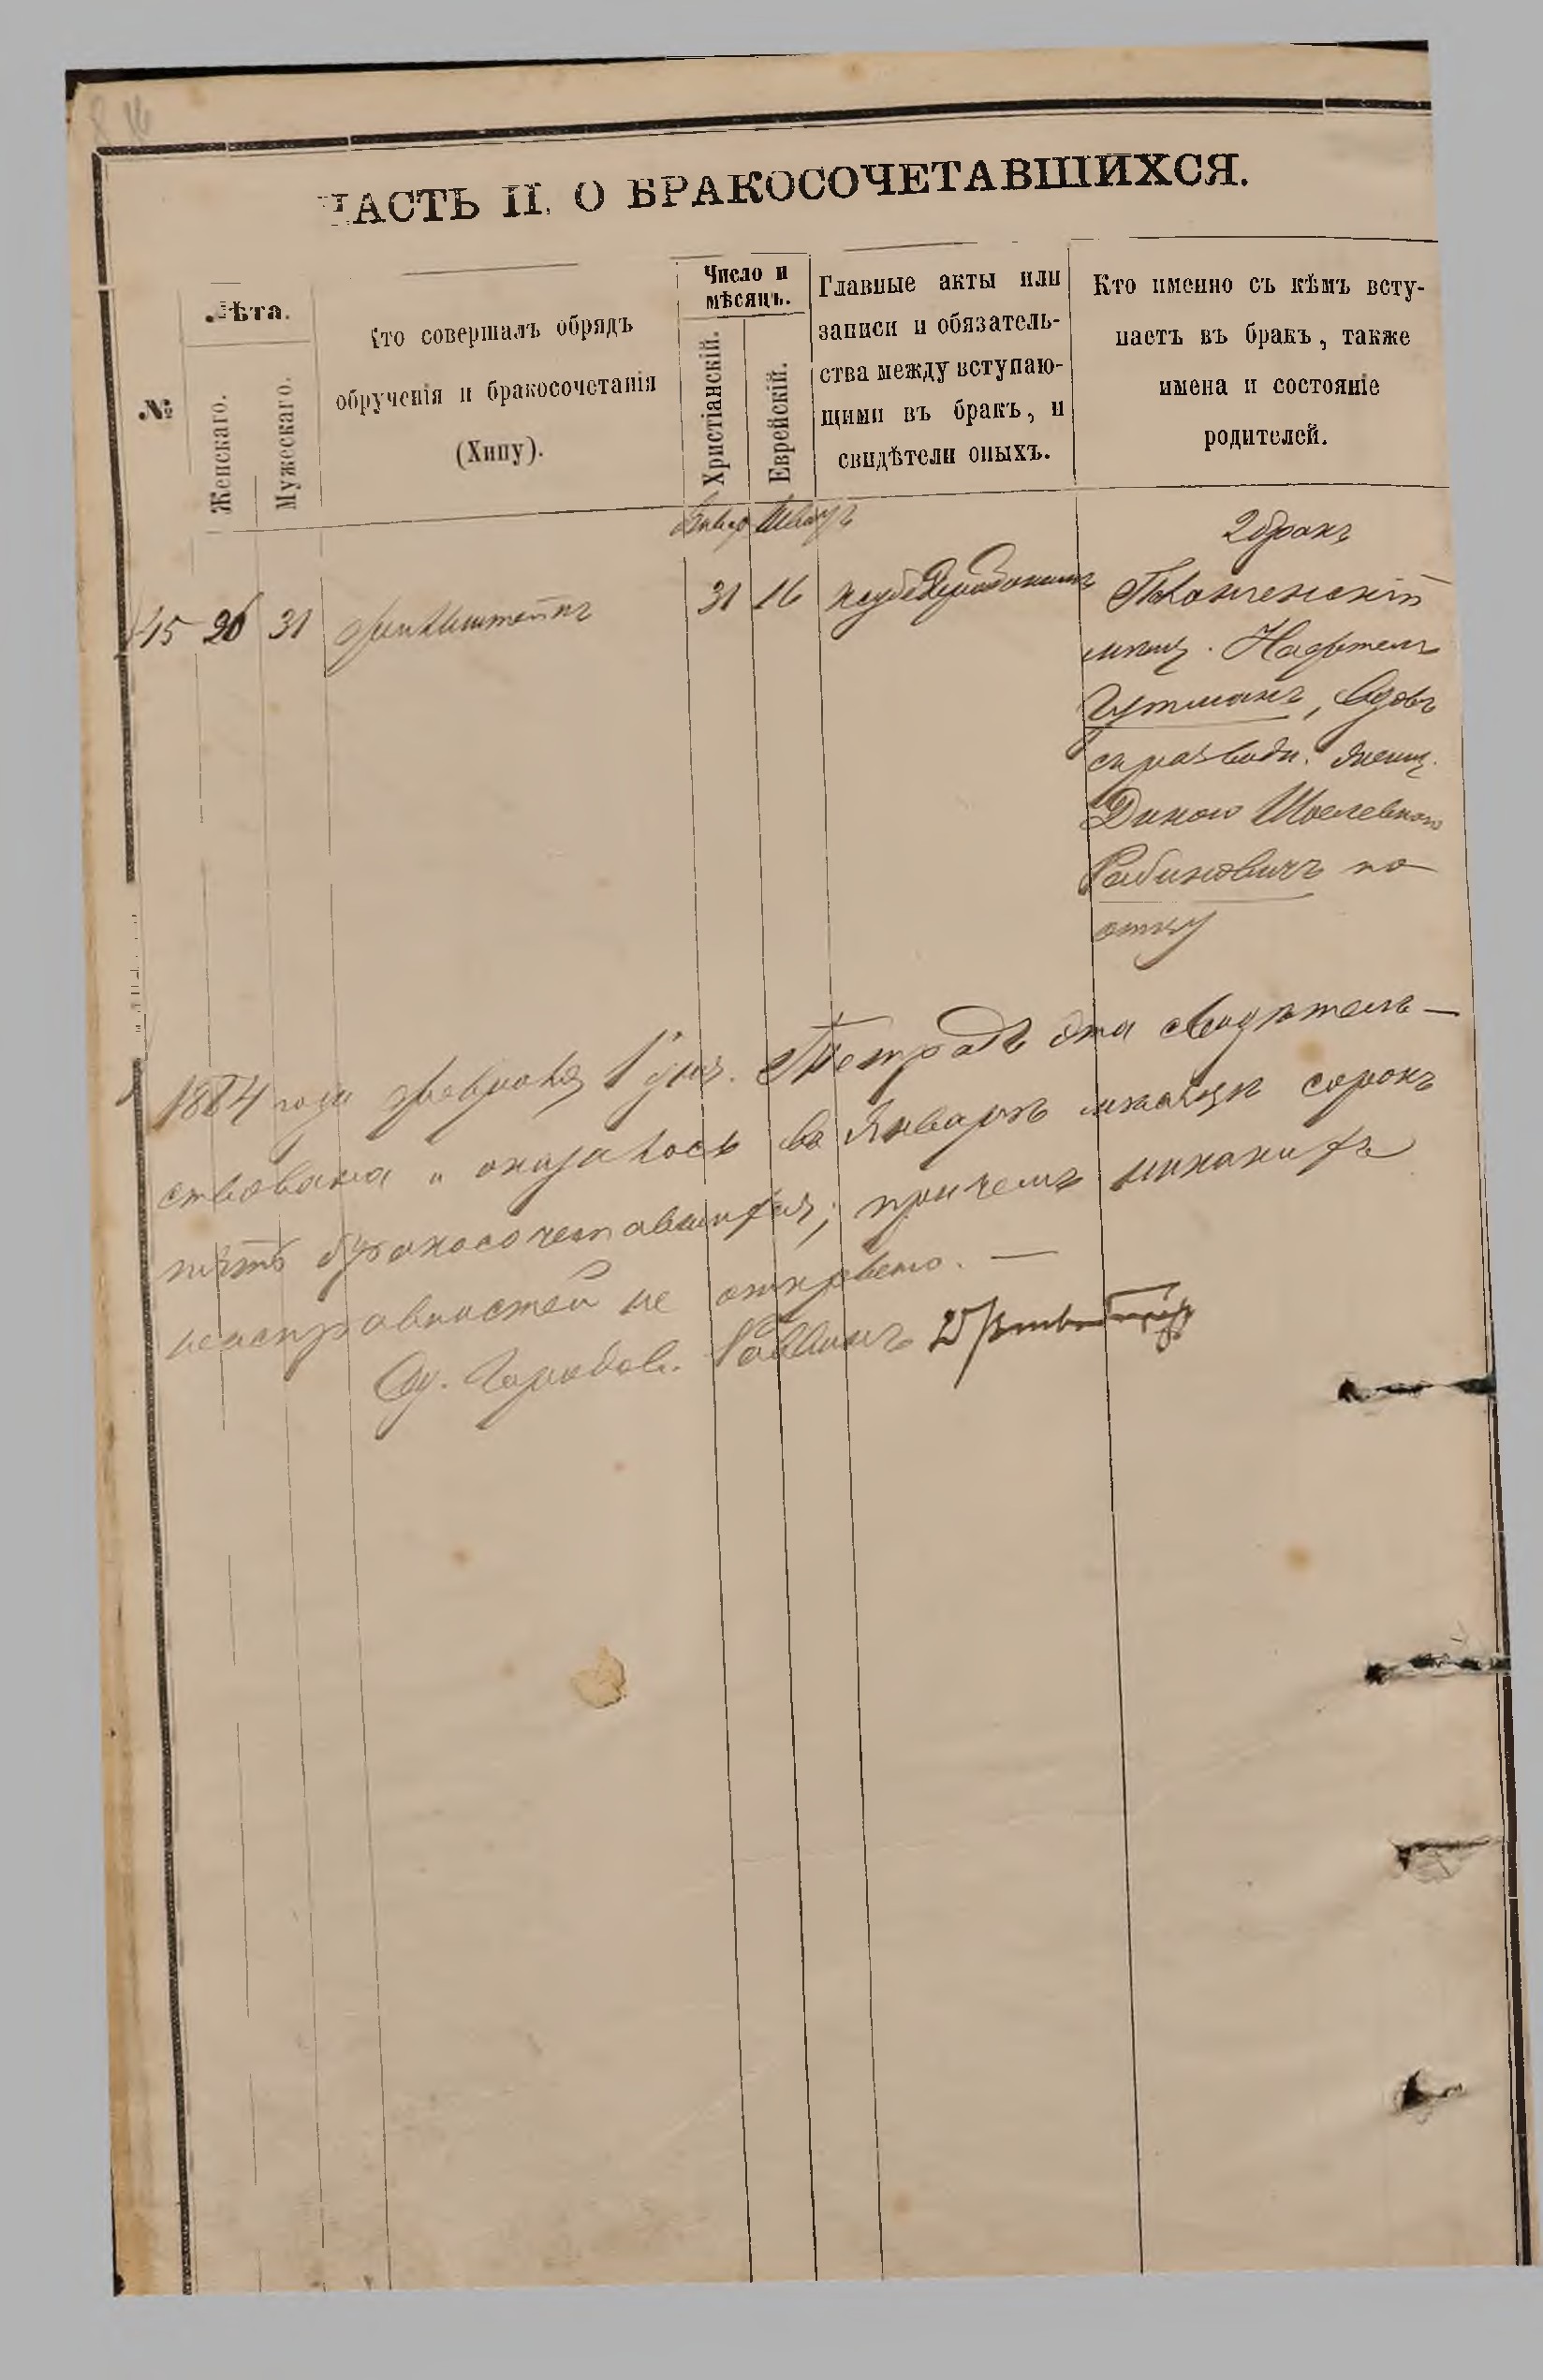 ЧАСТЬ II. О БРАКОСОЧЕТАВШИХСЯ.
№
Лѣта.
Женскаго.
Мужескаго.
Кто совершалъ обрядъ
обрученія и бракосочетанія
(Хипу).
Число и
мѣсяцъ.
Христіанскій.
Еврейскій.
Главные акты или
записи и обязатель-
ства между вступаю-
щими въ бракъ, и
свидѣтели оныхъ.
Кто именно съ кѣмъ всту-
паетъ въ бракъ, также
имена и состояніе
родителей.
Январ Шватъ
45 26 31
31 16
2 бракъ
мѣщ.
Гутманъ, вдовъ
съ развод. женщ.
Диною
Рабиновичъ по
отцу
1884 года февраля 1 дня. Тетрадь эта свидѣтель-
ствована и оказалось въ Январѣ мѣсяцѣ сорокъ
пять бракосочетавшихся; причемъ никакихъ
неисправностей не открыто. —
Од. Городов. Раввинъ